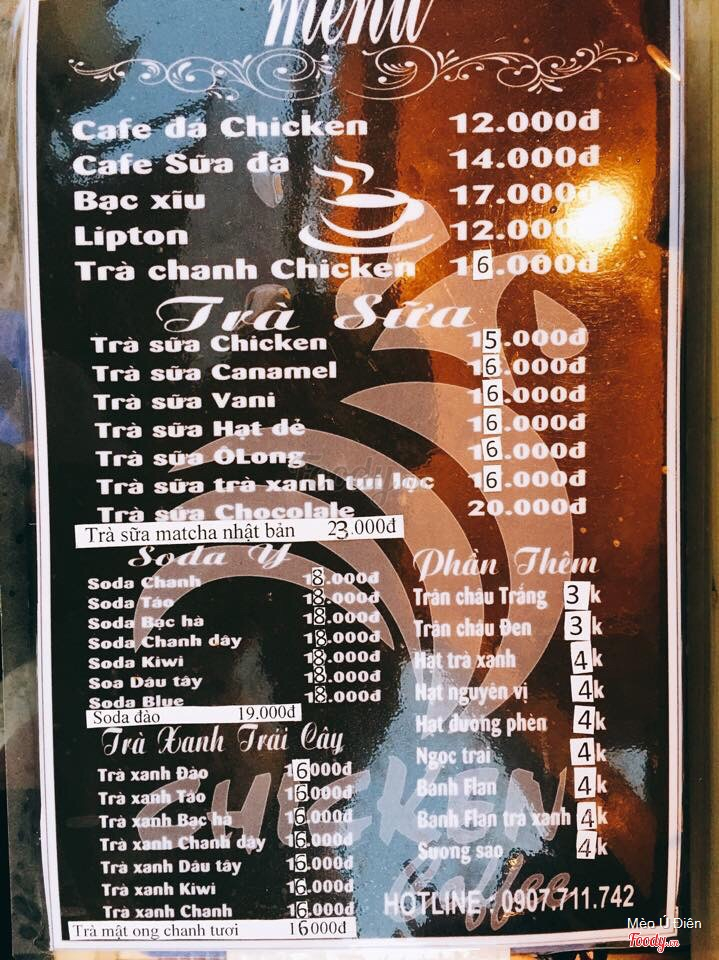 menu
Cafe đá Chicken 12.000đ
Cafe Sữa đá 14.000đ
Bạc xĩu 17.000đ
Lipton 12.000đ
Trà chanh Chicken 16.000đ
Trà Sữa
Trà sữa Chicken 15.000đ
Trà sữa Canamel 16.000đ
Trà sữa Vani 16.000đ
Trà sữa Hạt dẻ 16.000đ
Trà sữa ÔLong 16.000đ
Trà sữa trà xanh túi lọc 16.000đ
Trà sữa Chocolale 20.000đ
Trà sữa matcha nhật bản 23.000đ
Soda Ý
Soda Chanh 18.000đ
Soda Táo 18.000đ
Soda Bạc hà 18.000đ
Soda Chanh dây 18.000đ
Soda Kiwi 18.000đ
Soa Dâu tây 18.000đ
Soda Blue 18.000đ
Soda đào 19.000đ
Trà Xanh Trái Cây
Trà xanh Đào 16000đ
Trà xanh Táo 16.000đ
Trà xanh Bạc hà 16.000đ
Trà xanh Chanh dây 16.000đ
Trà xanh Dâu tây 16.000đ
Trà xanh Kiwi 16.000đ
Trà xanh Chanh 16.000đ
Trà mật ong chanh tươi 16000đ
Phần Thêm
Trân châu Trắng 3k
Trân châu Đen 3k
Hạt trà xanh 4k
Hạt nguyên vị 4k
Hạt đường phèn 4k
Ngọc trai 4k
Bánh Flan 4k
Bánh Flan trà xanh 4k
Sương sáo 4k
CHICKEN
Coffee
HOTLINE : 0907.711.742
Foody
Mèo Ú Điên
Foody.vn